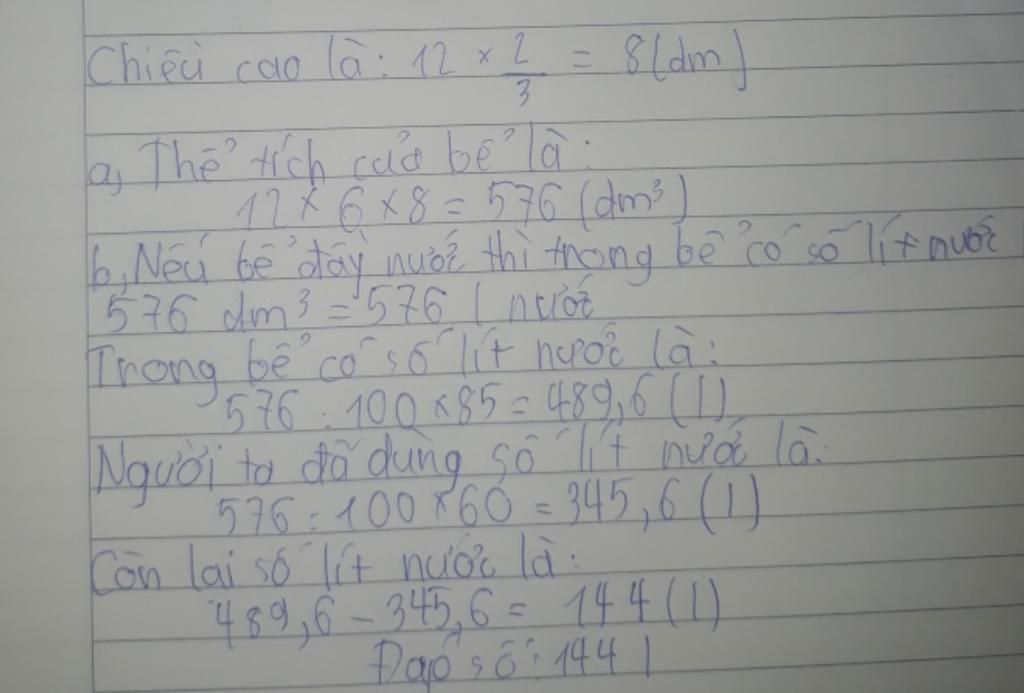 Chiều cao là: 12 × 2/3 = 8 (dm)
a, Thể tích của bể là:
12 × 6 × 8 = 576 (dm³)
b, Nếu bể đầy nước thì trong bể có số lít nước
576 dm³ = 576 l nước
Trong bể có số lít nước là:
576 : 100 × 85 = 489,6 (l)
Người ta đã dùng số lít nước là:
576 : 100 × 60 = 345,6 (l)
Còn lại số lít nước là:
489,6 - 345,6 = 144 (l)
Đáp số: 144 l